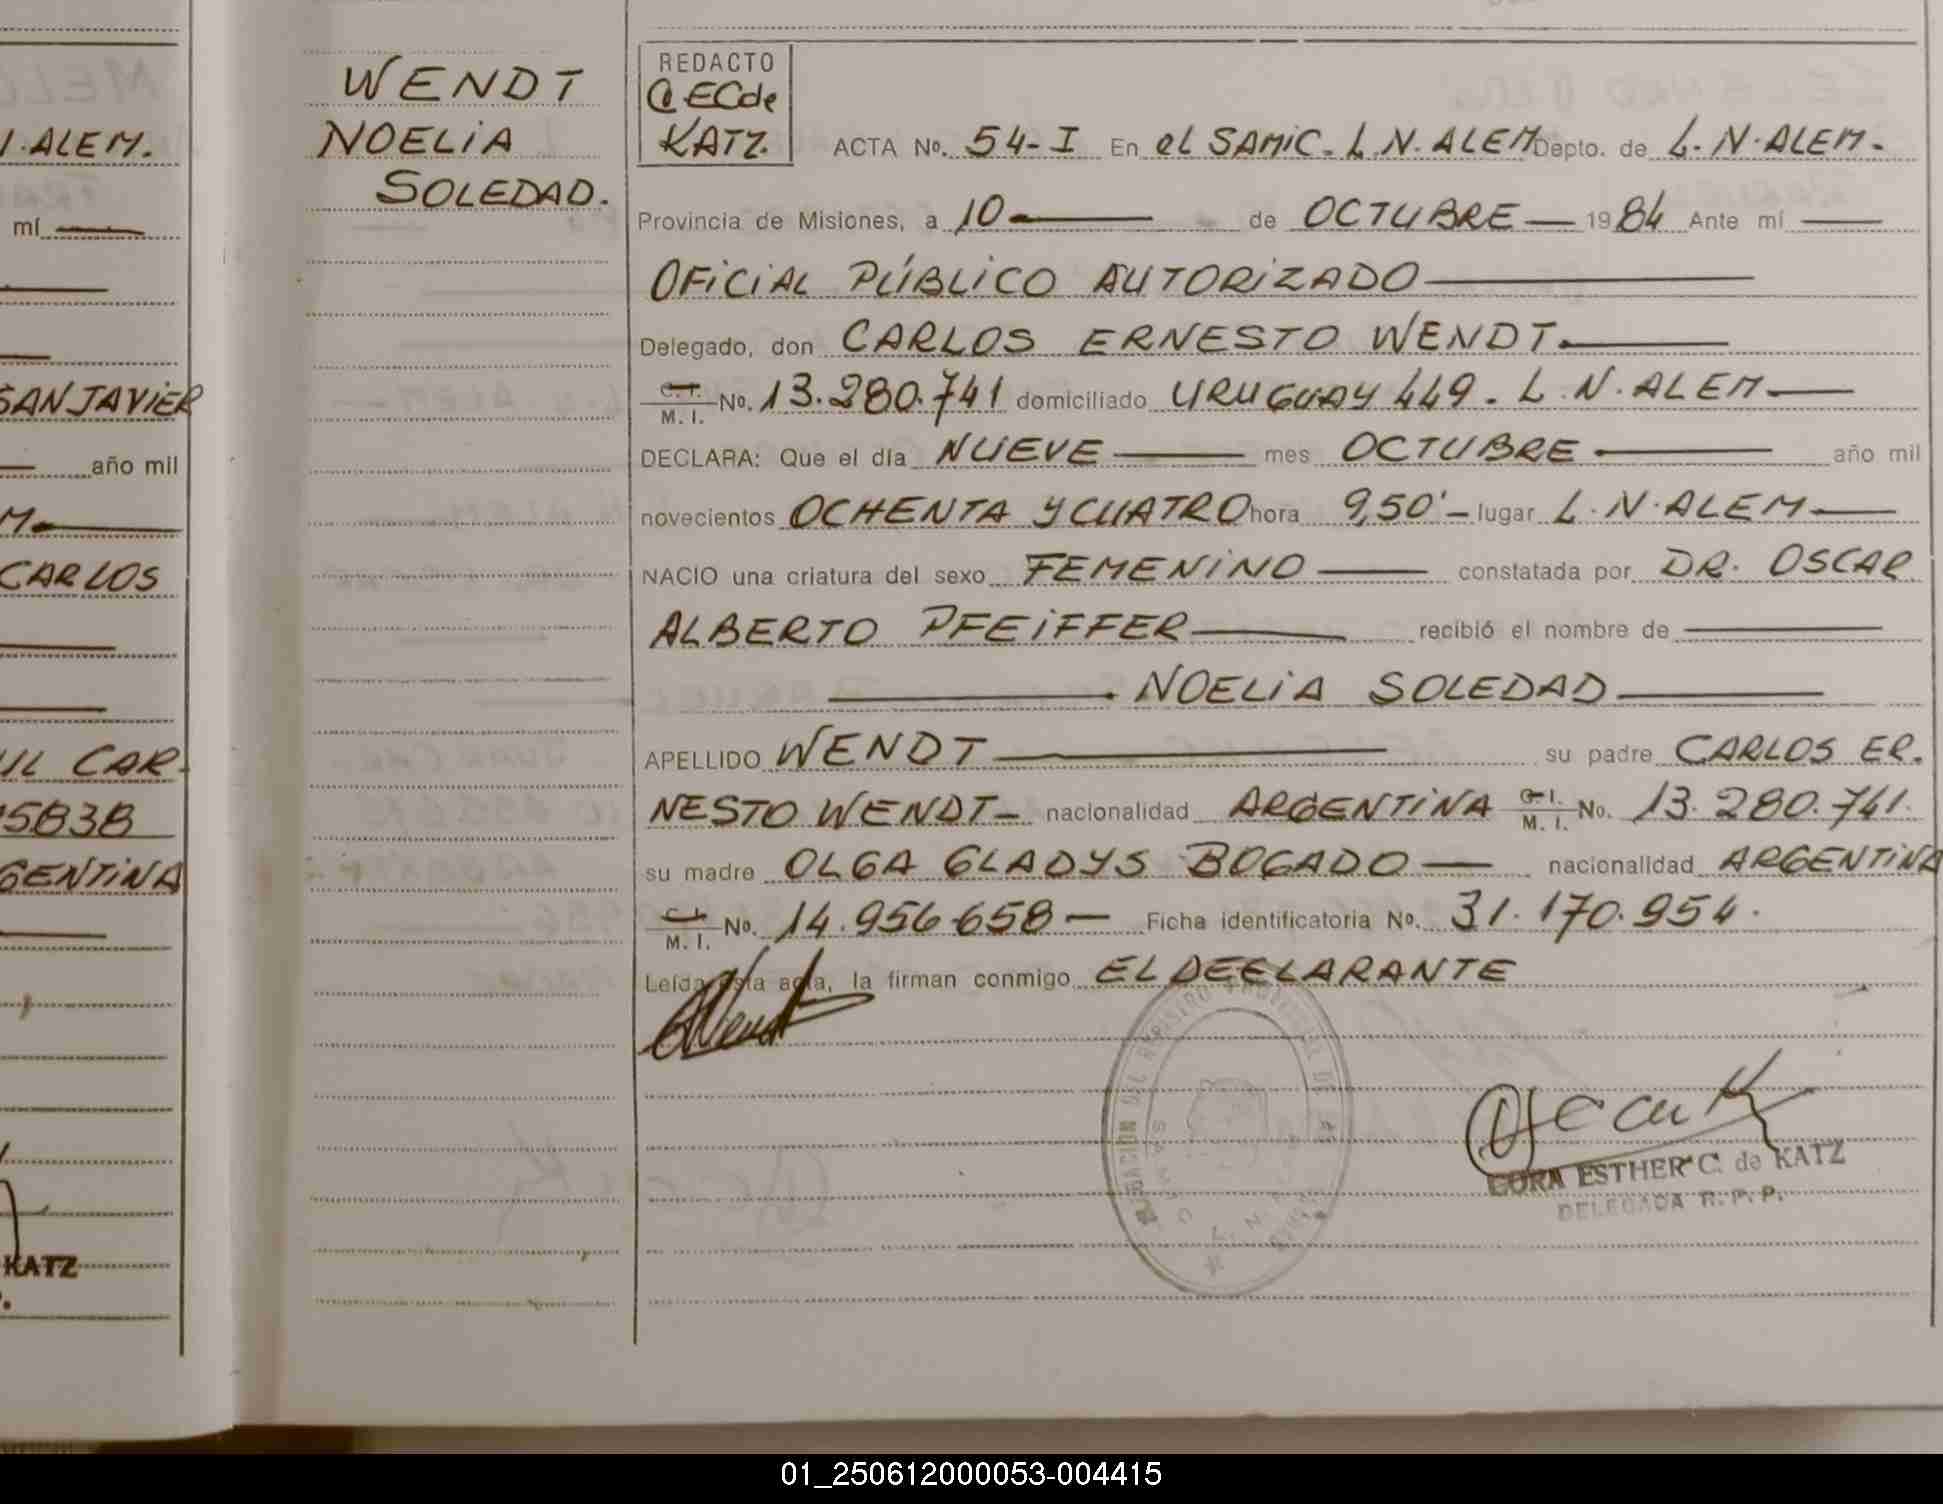 N. ALEM.
mí
SAN JAVIER
año mil
M.
CARLOS
UL CAR-
15838
GENTINA
KATZ
P.
WENDT
NOELIA
SOLEDAD.
REDACTO
@ECde
KATZ.
ACTA No. 54-I En el SAMIC. L.N. ALEM Depto. de L.N. ALEM.
Provincia de Misiones, a 10 de OCTUBRE 1984 Ante mí
OFICIAL PÚBLICO AUTORIZADO
Delegado, don CARLOS ERNESTO WENDT.
C. I. M. I. No. 13.280.741 domiciliado URUGUAY 449. L.N. ALEM
DECLARA: Que el día NUEVE mes OCTUBRE año mil
novecientos OCHENTA Y CUATRO hora 9,50' lugar L.N. ALEM
NACIO una criatura del sexo FEMENINO constatada por DR. OSCAR
ALBERTO PFEIFFER recibió el nombre de
NOELIA SOLEDAD
APELLIDO WENDT su padre CARLOS ER.
NESTO WENDT nacionalidad ARGENTINA C. I. M. I. No. 13.280.741.
su madre OLGA GLADYS BOGADO nacionalidad ARGENTINA
C. I. M. I. No. 14.956.658 Ficha identificatoria No. 31.170.954.
Leída esta acta, la firman conmigo EL DEELARANTE
CORA ESTHER C. de KATZ
DELEGADA R. P. P.
01_250612000053-004415